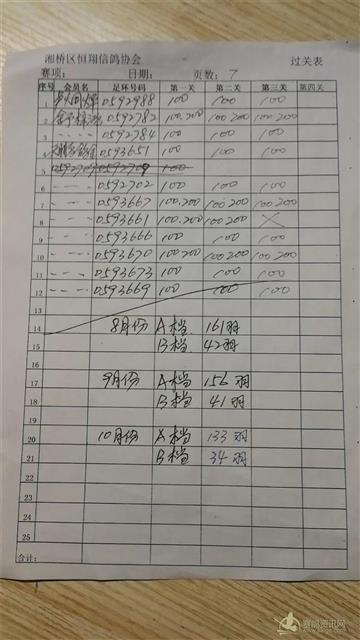 湘桥区恒翔信鸽协会 过关表
赛项： 日期： 页数：7
序号 会员名 足环号码 第一关 第二关 第三关 第四关
1 0592988 100 100 100
2 0592782 100.200 100.200 100.200
3 〃 0592784 100 100 100
4 0593651 100 100 100
5 0592709 0592709 100
6 〃 0592702 100 100 100
7 〃 0593667 100.200 100.200 100.200
8 〃 0593661 100.200 100.200 ×
9 〃 0593666 100 100 100
10 〃 0593670 100.200 100.200 100.200
11 〃 0593673 100 100 100
12 〃 0593669 100 100 100
13
14 8月份 A档 161羽
15 B档 42羽
16
17 9月份 A档 156羽
18 B档 41羽
19
20 10月份 A档 133羽
21 B档 34羽
22
23
24
25
合计：
赛鸽资讯网